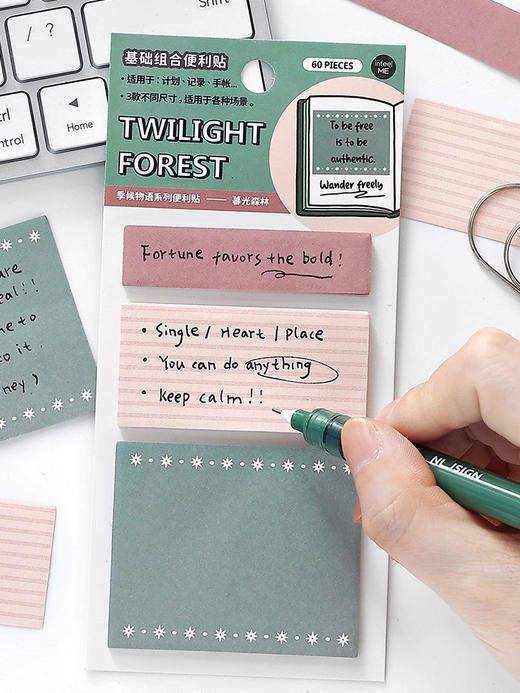 Shift
? /
trl
Home
基础组合便利贴
60 PIECES
infeel
ME
• 适用于：计划、记录、手帐...
• 3款不同尺寸，适用于各种场景。
TWILIGHT
FOREST
季候物语系列便利贴 —— 暮光森林
To be free
is to be
authentic.
Wander freely
Fortune favors the bold!
• Single / Heart / Place
• You can do anything
• keep calm!!
are
eal!!
e to
o it.
ney)